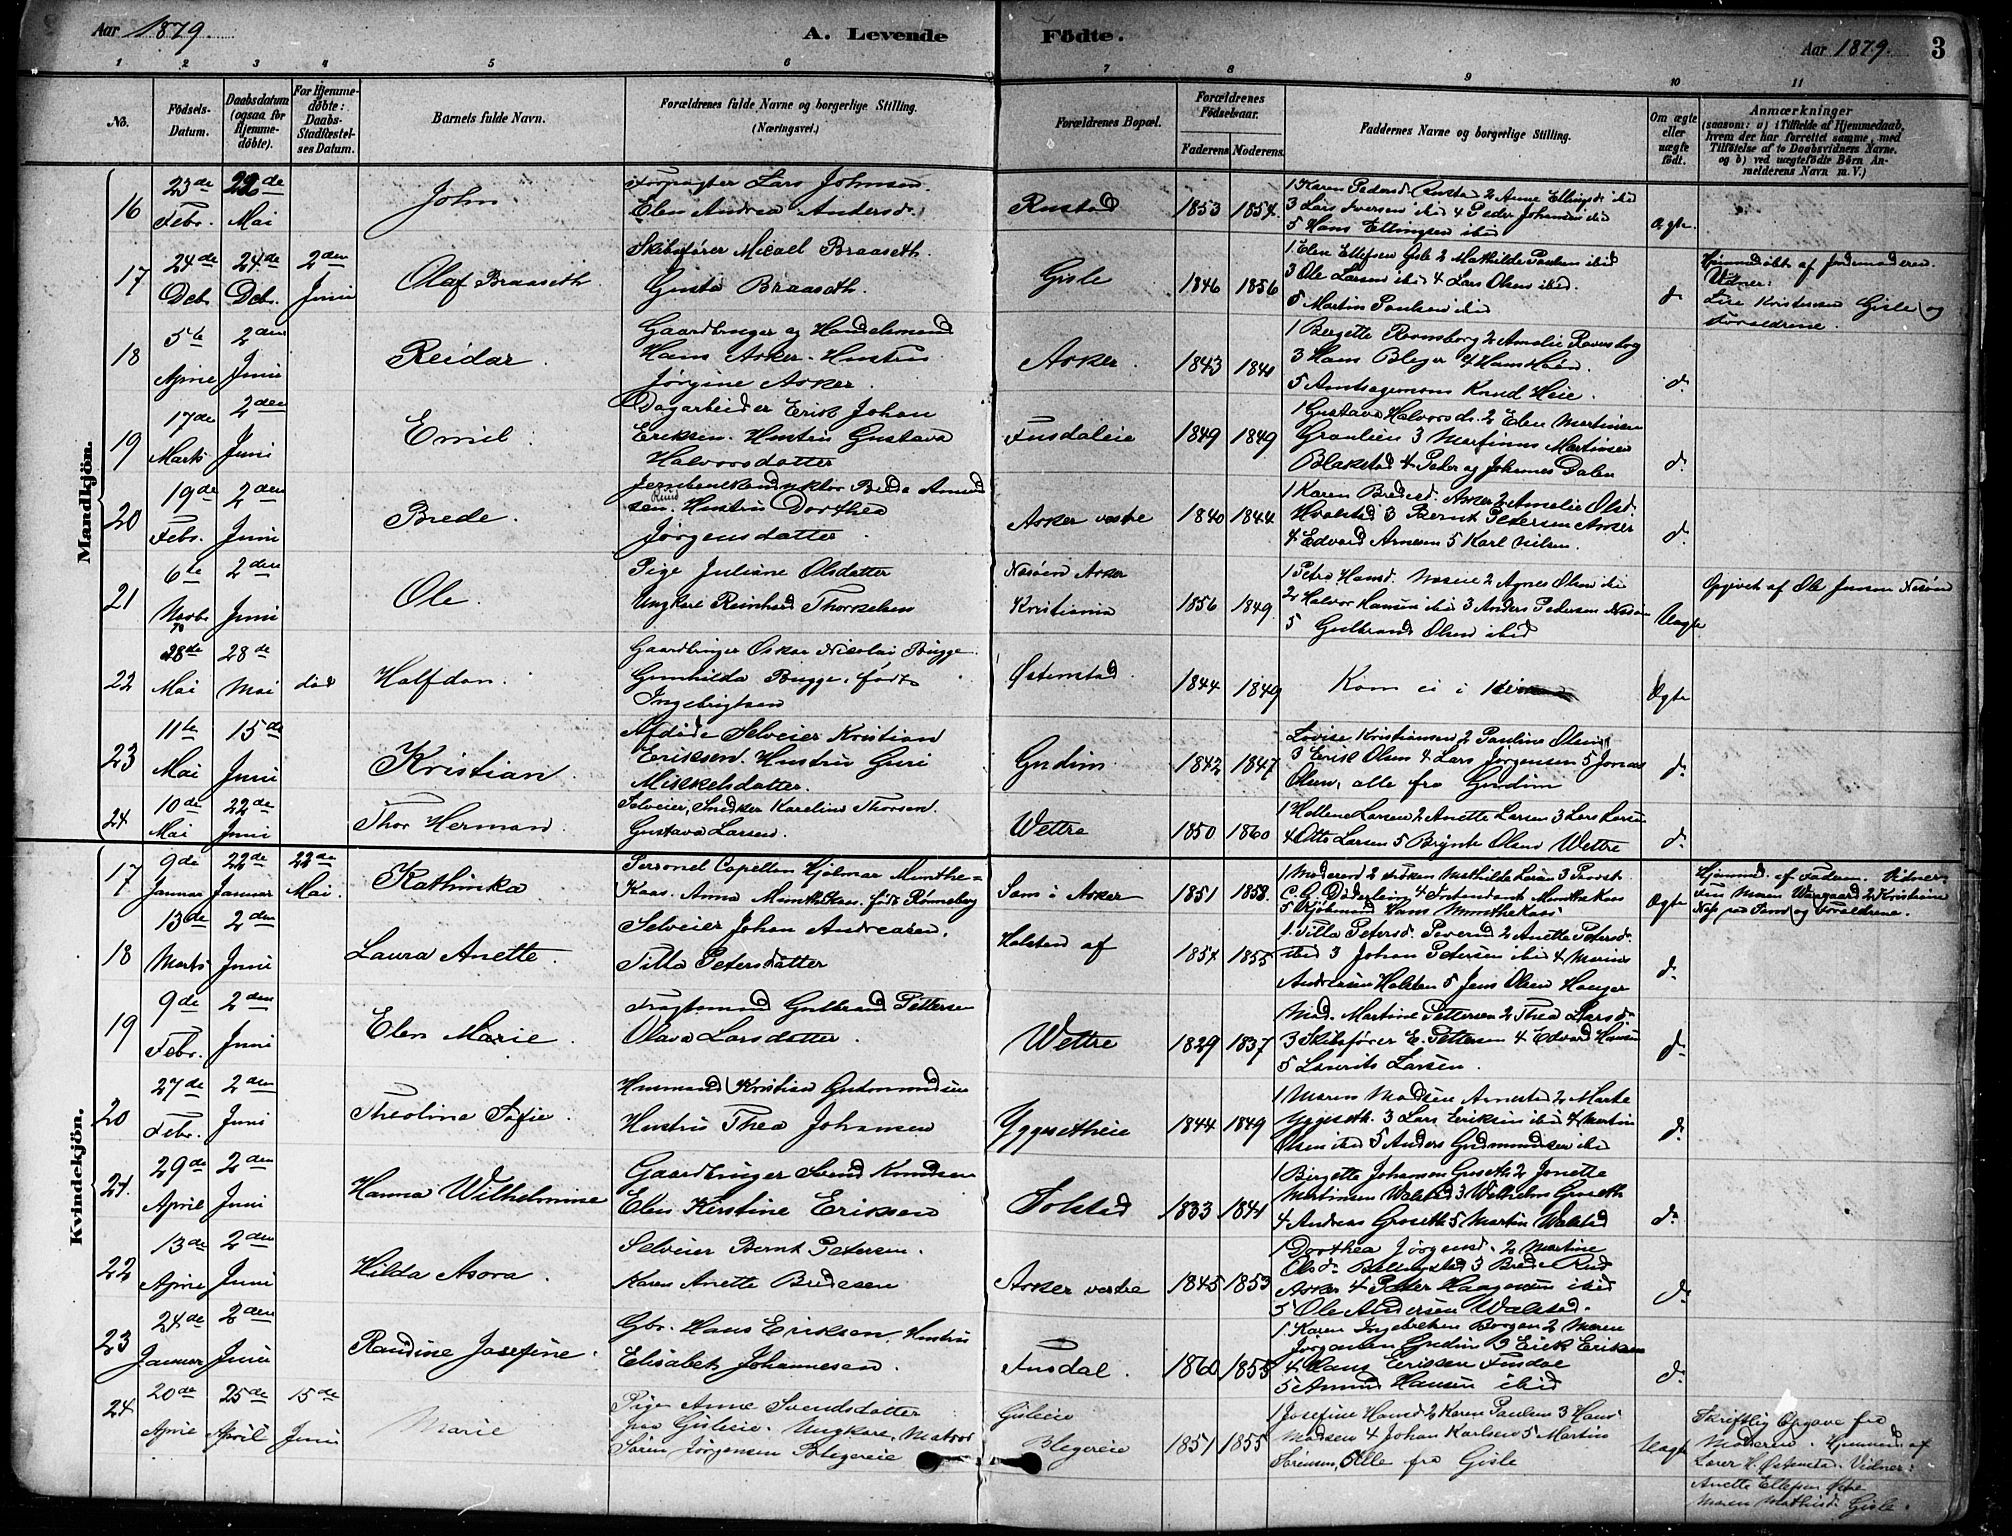 Aar 1879.
A. Levende Födte.
Aar 1879.
3
1 2 3 4 5 6 7 8 9 10 11
No.
Födsels-Datum.
Daabsdatum (ogsaa for Hjemme-döbte).
For Hjemme-döbte: Daabs-Stadfæstel-ses Datum.
Barnets fulde Navn.
Forældrenes fulde Navne og borgerlige Stilling.
(Næringsvei.)
Forældrenes Bopæl.
Forældrenes Födselsaar.
Faderens Moderens.
Faddernes Navne og borgerlige Stilling.
Om ægte eller uægte födt.
Anmærkninger
(saasom: a) i Tilfælde af Hjemmedaab,
hvem der har forrettet samme, med
Tilföielse af to Daabsvidners Navne.
og b) ved uægtefödte Börn An-
melderens Navn m. V.)
Mandkjön.
16 23de Febr. 22de Mai
John
Forpagter Lars Johnsen.
Elen Andrea Andersd.
Rustad
1853 1854.
3 Lars Iversen ibid 4 Peder Johansen ibid
5 Hans Ellingsen ibid
Ægte.
17 24de Deb. 24de Deb. 2den Juni
Olaf Braaseth
Skibsfører Micael Braaseth.
Gusta Braaseth.
Gisle
1846 1856
1 Elen Ellefsen Gisle 2 Mathilde Paulsen ibid
3 Ole Larsen ibid 4 Lars Olsen ibid.
5 Martin Paulsen ibid
do
Hjemmedøbt af Jordmoderen.
Vidner:
Lise Kristensen Gisle og
Forældrene.
18 5te April 2den Juni
Reidar.
Gaardbruger og Handelsmand
Hans Asker. Hustru
Jørgine Asker.
Asker.
1843 1841
1 Bergette Ravnsborg 2 Amalie Ravnsborg
3 Hans Bleger 4 Hans Høn.
5 Amtsagronom Knud Heie.
do
19 17de Marts 2den Juni
Emil.
Dagarbeider Erik Johan
Eriksen. Hustru Gustava
Halvorsdatter
Fusdaleie
1849 1849
1 Gustava Halvorsd. 2 Elen Martinsen
Graulien 3 Martinus Martinsen
Blakstad 4 Peder og Johannes Dalen
do
20 19de Febr. 2den Juni
Brede.
Jernbanekonduktør Brede Amund
sen Ruud. Hustru Dorthea
Jørgensdatter.
Asker vestre
1840 1844
1 Karen Bredesd. Asker 2 Amalie Olsd.
Hvalstad 3 Bernt Petersen Asker
4 Edvard Arnesen 5 Karl Nilsen.
do
21 6te Novbr 2den Juni
Ole.
Pige Juliane Olsdatter
Ungkarl Reinhard Thorkelsen
Nesøen Asker
Kristiania
1856 1849.
1 Petra Hansd. Nesøie 2 Agnes Olsen ibid
2 Halvor Hansen ibid 3 Anders Pedersen Nesøen
5 Gulbrand Olsen ibid
Uægte
Opgivet af Ole Jensen Nesøen
22 28de Mai 28de Mai død
Halfdan.
Gaardbruger Oskar Nicolai Bugge.
Gunhilda Bugge, født
Ingebrigtsen
Østenstad.
1844 1849
Kom ei i
Ægte
23 11te Mai 15de Juni
Kristian.
Afdøde Selveier Kristian
Eriksen. Hustru Guri
Mikkelsdatter.
Gudim.
1842 1847
Lovise Kristiansen 2 Pauline Olsen
3 Erik Olsen 4 Lars Jørgensen 5 Jonas
Olsen, alle fra Gudim
do
24 10de Mai 22de Juni
Thor Herman.
Selveier, Snedker Karelius Thorsen.
Gustava Larsen.
Wettre
1850 1860
1 Hellene Larsen 2 Anette Larsen 3 Lars Larsen
4 Otto Larsen 5 Brynte Olsen Wettre
do
Kvindekjön.
17 9de Januar 22de Januar 22de Mai.
Kathinka
Personel Capellan Hjalmar Munthe=
Kaas. Anna MuntheKaas. født Rønneberg
Sem i Asker
1851 1858.
1 Moderen 2 Frøken Mathilde 3 Provst
C. G. Døderlein 4 Intendant MuntheKaas
5 Kjøbmand Hans MuntheKaas
Ægte
Hjemmed. af Faderen. Vidner:
og Forældrene.
18 13de Marts 2den Juni
Laura Anette.
Selveier Johan Andreasen.
Tilla Petersdatter
Holsten af
1854 1855
1. Tilla Petersd. Poverud 2 Anette Petersd.
ibid 3 Johan Petersen ibid 4 Marius
Andersen Holsten 5 Jens Olsen Hauger
do
19 9de Febr. 2den Juni
Elen Marie.
Fragtemand Gulbrand Pettersen
Olava Larsdatter.
Wettre
1829 1837
Mad. Martine Pettersen 2 Thea Larsd.
3 Skibsfører E. Pettersen 4 Edvard Hansen
5 Laurits Larsen.
do
20 27de Febr. 2den Juni
Theoline Sofie.
Husmand Kristian Gudmundsen
Hustru Thea Johansen
Yggesetheie
1844 1849
1 Maren Madsen Arnestad 2 Marte
Yggeseth. 3 Lars Eriksen ibid 4 Martin
Olsen ibid 5 Anders Gudmundsen ibid
do
21. 29de April 2den Juni
Hanna Wilhelmine
Gaardbruger Svend Knudsen
Elen Kirstine Eriksen
Solstad
1833 1841
1 Birgette Johansen Groseth 2 Jonette
Martinsen Walstad 3 Wilhelm Groseth
4 Andreas Groseth 5 Martin Walstad
do
22 13de April 2den Juni
Hilda Asora.
Selveier Bernt Petersen.
Karen Anette Bredesen
Asker vestre
1845 1853
1 Dorthea Jørgensd. 2 Martine
Olsd. Billingstad 3 Brede Ruud
Asker 4 Peter Haagensen ibid
5 Ole Andersen Walstad.
do
23 24de Januar 2den Juni
Randine Josefine.
Gbr. Hans Eriksen. Hustru
Elisabet Johannesen.
Fusdal.
1860 1855
1. Karen Ingebretsen Borgen 2 Maren
Jørgensen Gudim 3 Erik Eriksen
4 Hans Eriksen Fusdal
5 Amund Hansen ibid
do
24 20de April 25de April 15de Juni
Marie
Pige Anne Svendsdatter
fra Gisleeie. Ungkarl, Matros
Søren Jørgensen Blegereie
Gisleeie
Blegereie
1851 1855
1 Josefine Hansd 2 Karen Paulsen 3 Hans
Madsen 4 Johan Karlsen 5 Martin
Sørensen, Alle fra Gisle
Uægte
Skriftlig Opgave fra
Moderen. Hjemmed. af
Lærer H. Østenstad. Vidner:
Anette Ellefsen
Maren Mathisd. Gisle.